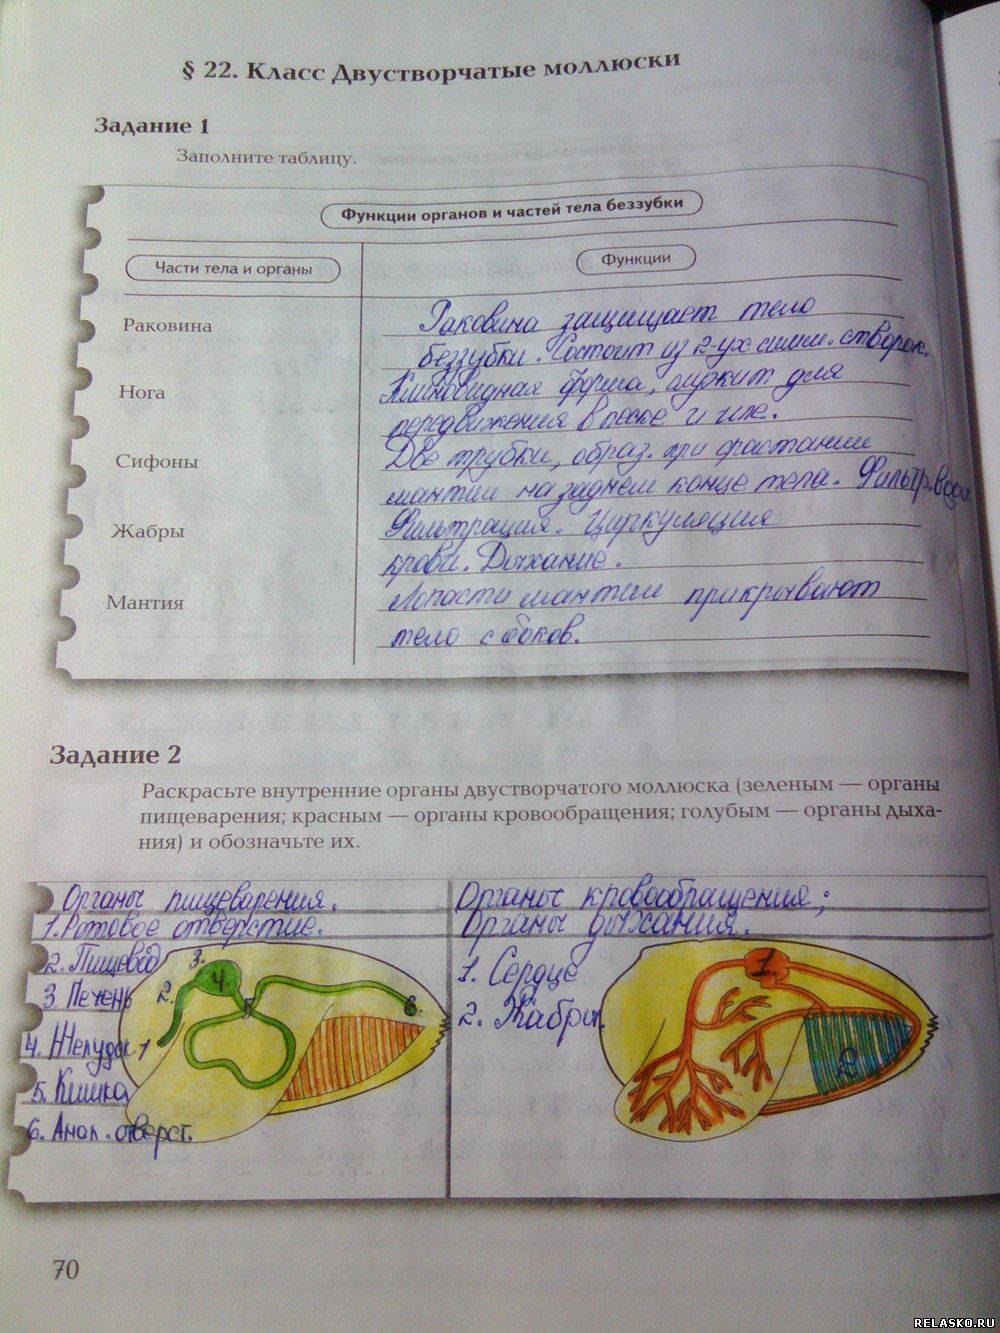 § 22. Класс Двустворчатые моллюски
Задание 1
Заполните таблицу.
Функции органов и частей тела беззубки
Части тела и органы
Функции
Раковина
Раковина защищает тело
беззубки. Состоит из 2-ух симм. створок.
Нога
Клиновидная форма, служит для
передвижения в песке и иле.
Сифоны
Две трубки, образ. при срастании
мантии на заднем конце тела. Фильтр. воды
Жабры
Фильтрация. Циркуляция
крови. Дыхание.
Мантия
Лопасти мантии прикрывают
тело с боков.
Задание 2
Раскрасьте внутренние органы двустворчатого моллюска (зеленым — органы
пищеварения; красным — органы кровообращения; голубым — органы дыха-
ния) и обозначьте их.
Органы пищеварения.
1. Ротовое отверстие.
2. Пищевод
3. Печень
4. Желудок
5. Кишка
6. Анал. отверст.
3.
4
2.
1
5
6.
Органы кровообращения;
Органы дыхания.
1. Сердце
2. Жабры.
1.
2.
70
RELASKO.RU